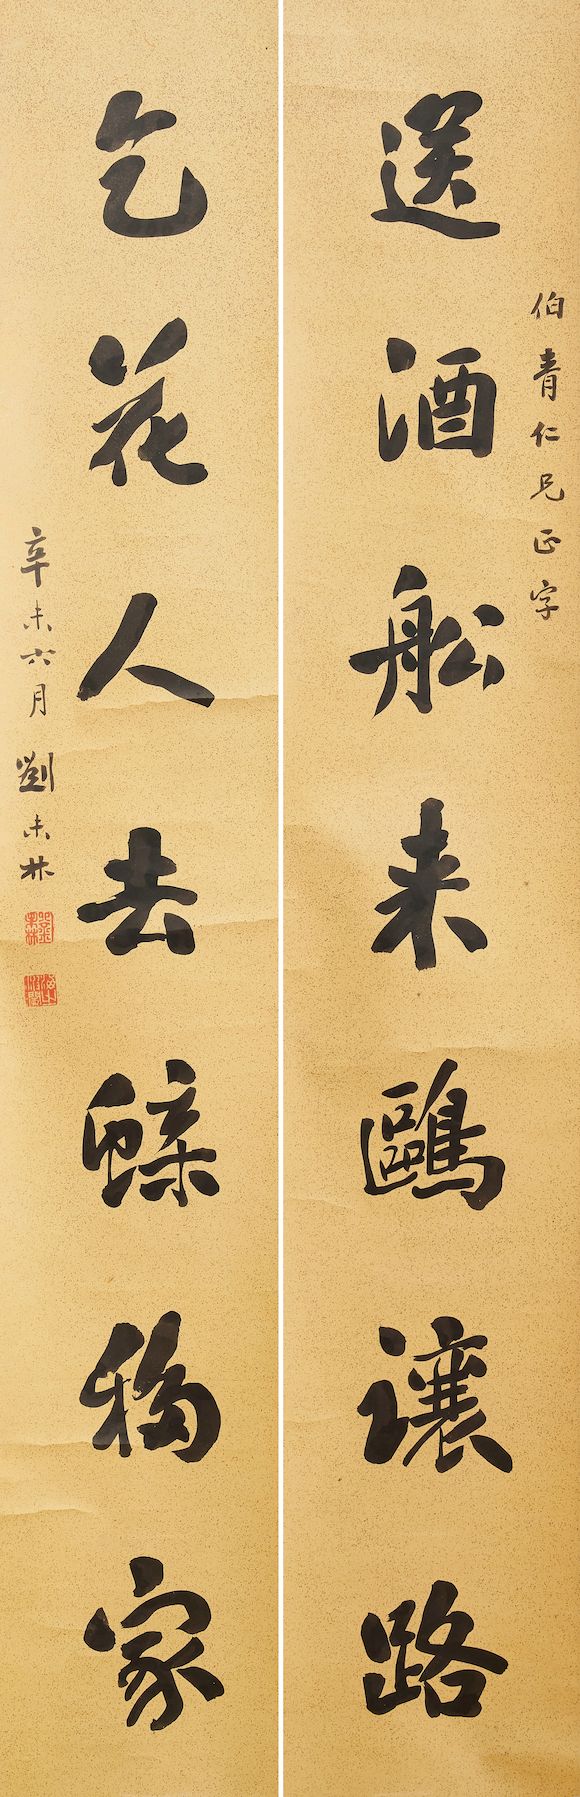 伯青仁兄正字
送酒舩来鷗讓路
乞花人去蝶移家
辛未六月 劉未林